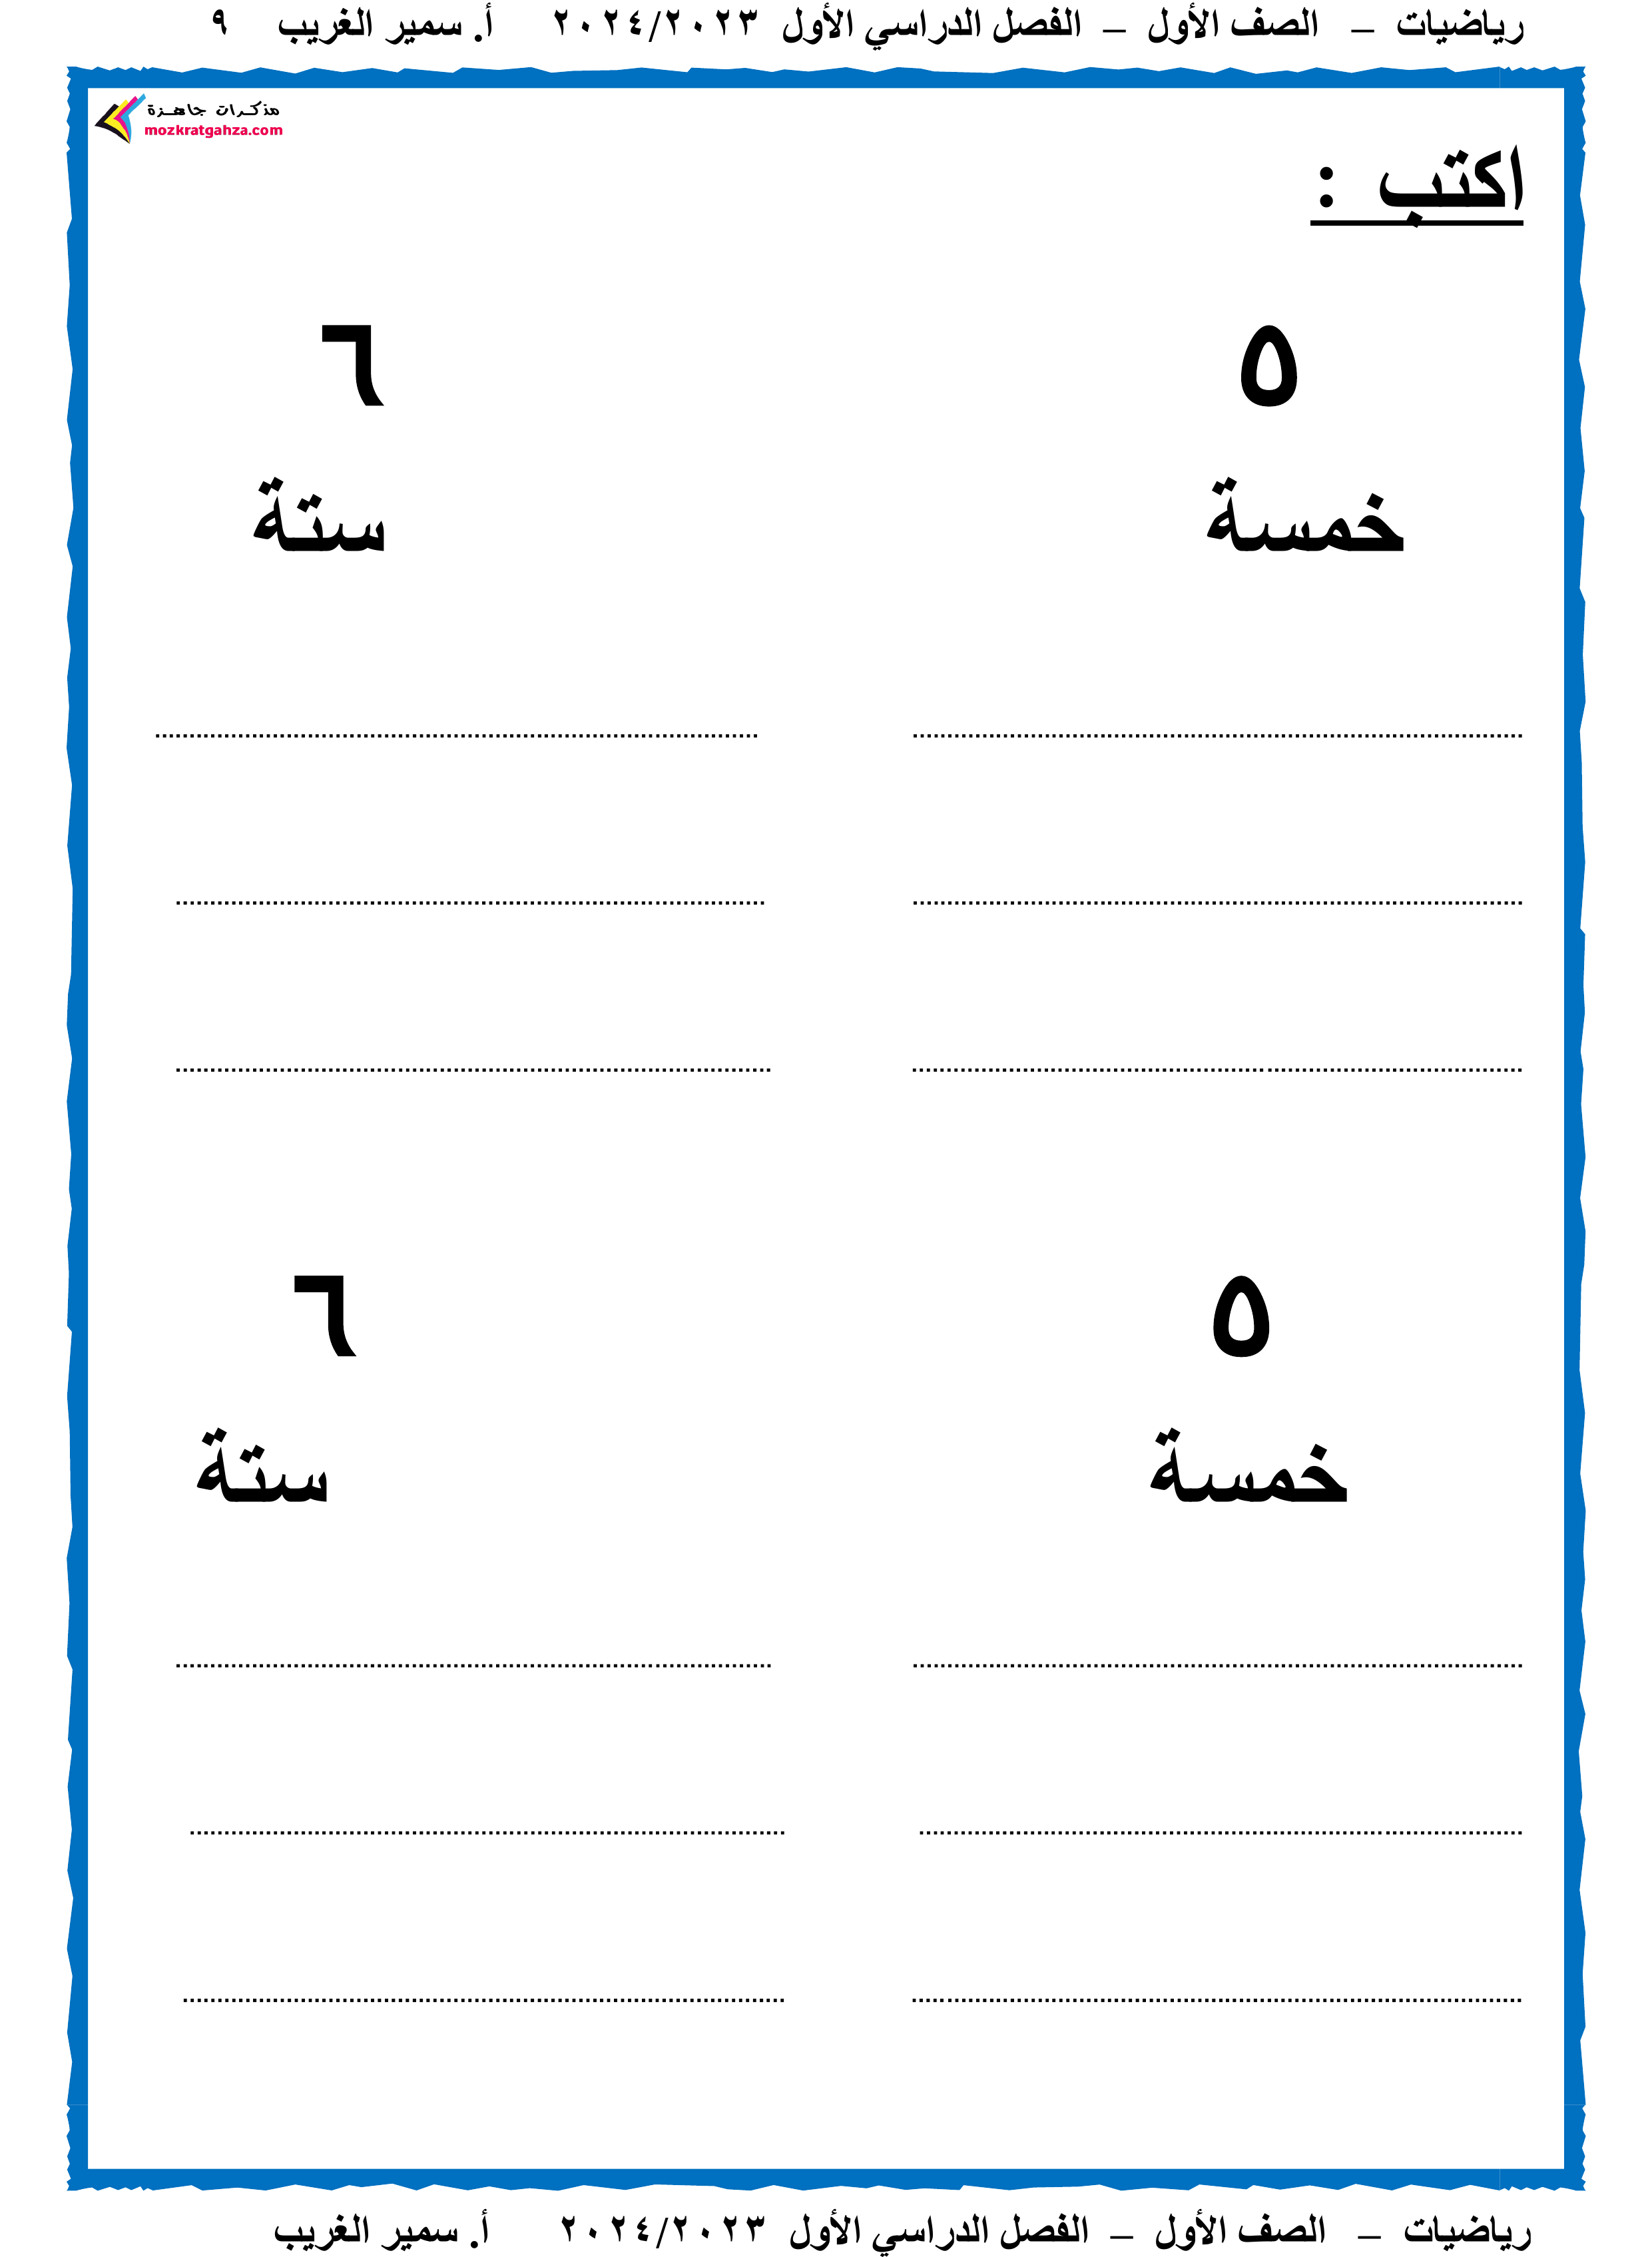 رياضيات – الصف الأول – الفصل الدراسي الأول ٢٠٢٤/٢٠٢٣ أ. سمير الغريب ٩
مذكرات جاهزة
mozkratgahza.com
اكتب :
٥ ٦
خمسة ستة
٥ ٦
خمسة ستة
رياضيات – الصف الأول – الفصل الدراسي الأول ٢٠٢٤/٢٠٢٣ أ. سمير الغريب